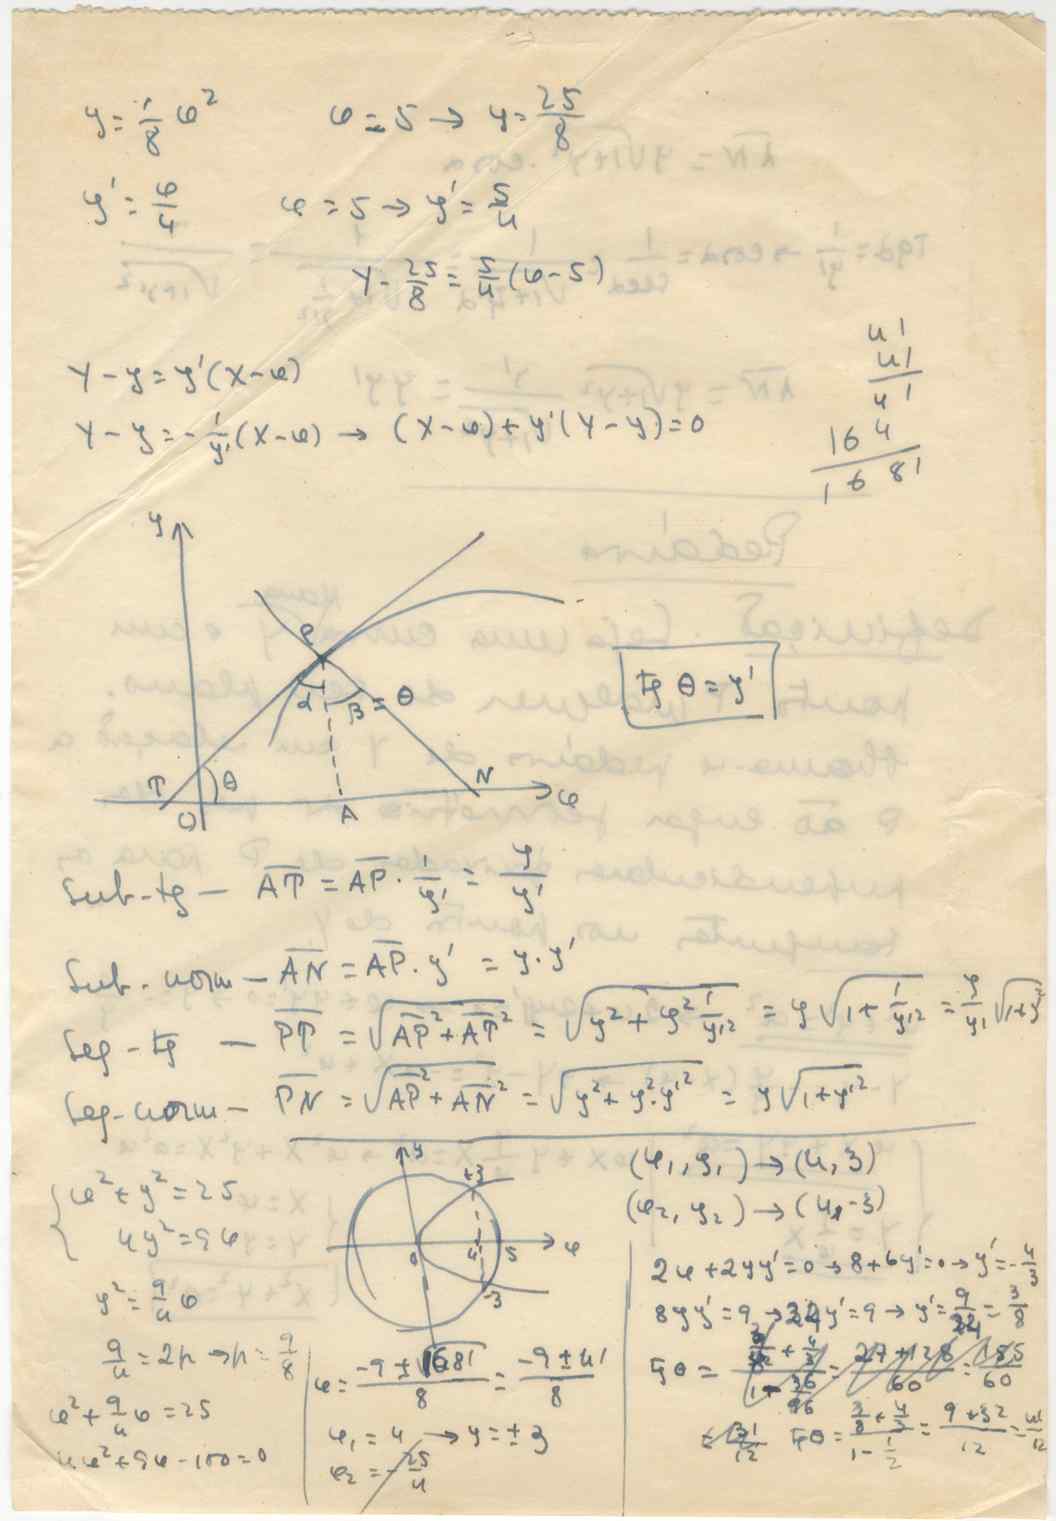 y = 1/8 x²    x = 5 → y = 25/8
y' = x/4    x = 5 → y' = 5/4
Y - 25/8 = 5/4 (x - 5)
Y - y = y' (X - x)
Y - y = - 1/y' (X - x) → (X - x) + y' (Y - y) = 0
41
41
41
164
1681
y
P
α β = θ
tg θ = y'
T O θ A N x
Sub-tg — AT = AP · 1/y' = y/y'
Sub-norm — AN = AP · y' = y · y'
Seg-tg — PT = √(AP² + AT²) = √(y² + y² 1/y'²) = y √(1 + 1/y'²) = y/y' √(1 + y'²)
Seg-norm — PN = √(AP² + AN²) = √(y² + y² · y'²) = y √(1 + y'²)
x² + y² = 25
4y² = 9x
y² = 9/4 x
9/4 = 2p → p = 9/8
x² + 9/4 x = 25
4x² + 9x - 100 = 0
y
+3
0 4 5 x
-3
x = (-9 ± √1681)/8 = (-9 ± 41)/8
x₁ = 4 → y = ± 3
x₂ = - 25/4
(x₁, y₁) → (4, 3)
(x₂, y₂) → (4, -3)
2x + 2yy' = 0 → 8 + 6y' = 0 → y' = - 4/3
8yy' = 9 → 24y' = 9 → y' = 9/24 = 3/8
tg θ = = (27 + 128)/60 = 155/60
= 31/12    tg θ = (3/8 + 4/3)/(1 - 1/2) = (9 + 32)/12 = 41/12